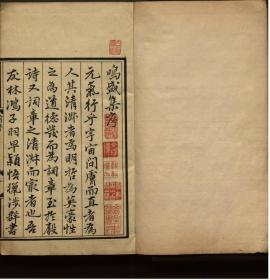 鳴盛集序
元氣行乎宇宙間廣而直者為
人其清淑者為明哲為英豪性
立為道德發而為詞章至於殷
詩又詞章之清淑而最者也吾
友林鴻子羽早穎悟獵涉群書